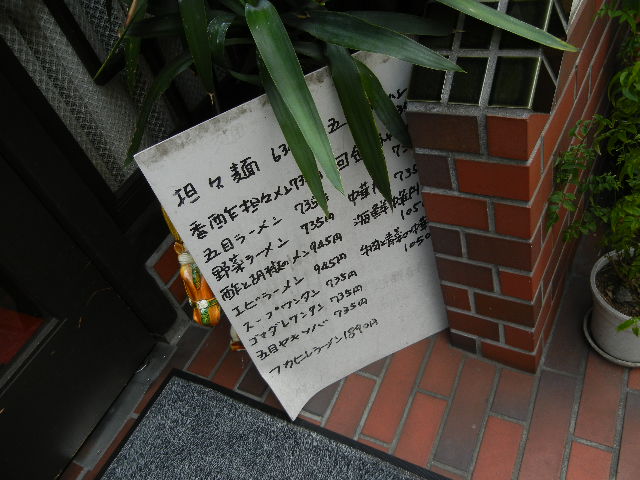 坦々麺 63 五
香酢坦々メン 735 回 735
五目ラーメン 735 中華 735
野菜ラーメン 735 海鮮中華 1050
酢と胡椒のメン 945円 牛肉と青菜の中華 1050
エビラーメン 945円
スープワンタン 735円
ゴマダレワンタン 735円
五目ヤキソバ 735円
フカヒレラーメン 1890円